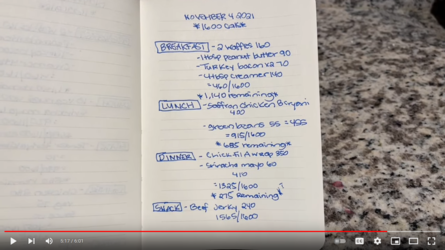 NOVEMBER 4 2021
*1600 cals*
BREAKFAST - 2 waffles 160
- 1tbsp peanut butter 90
- Turkey bacon x2 70
- 4tbsp creamer 140
= 460/1600
* 1,140 remaining*
LUNCH - Saffron Chicken Biryani
400
- green beans 55 = 455
= 915/1600
* 685 remaining*
DINNER - Chick fil A wrap 350
- Sriracha mayo 60
410
= 1325/1600
* 275 remaining*
SNACK - Beef Jerky 240
1565/1600
5:17 / 6:01